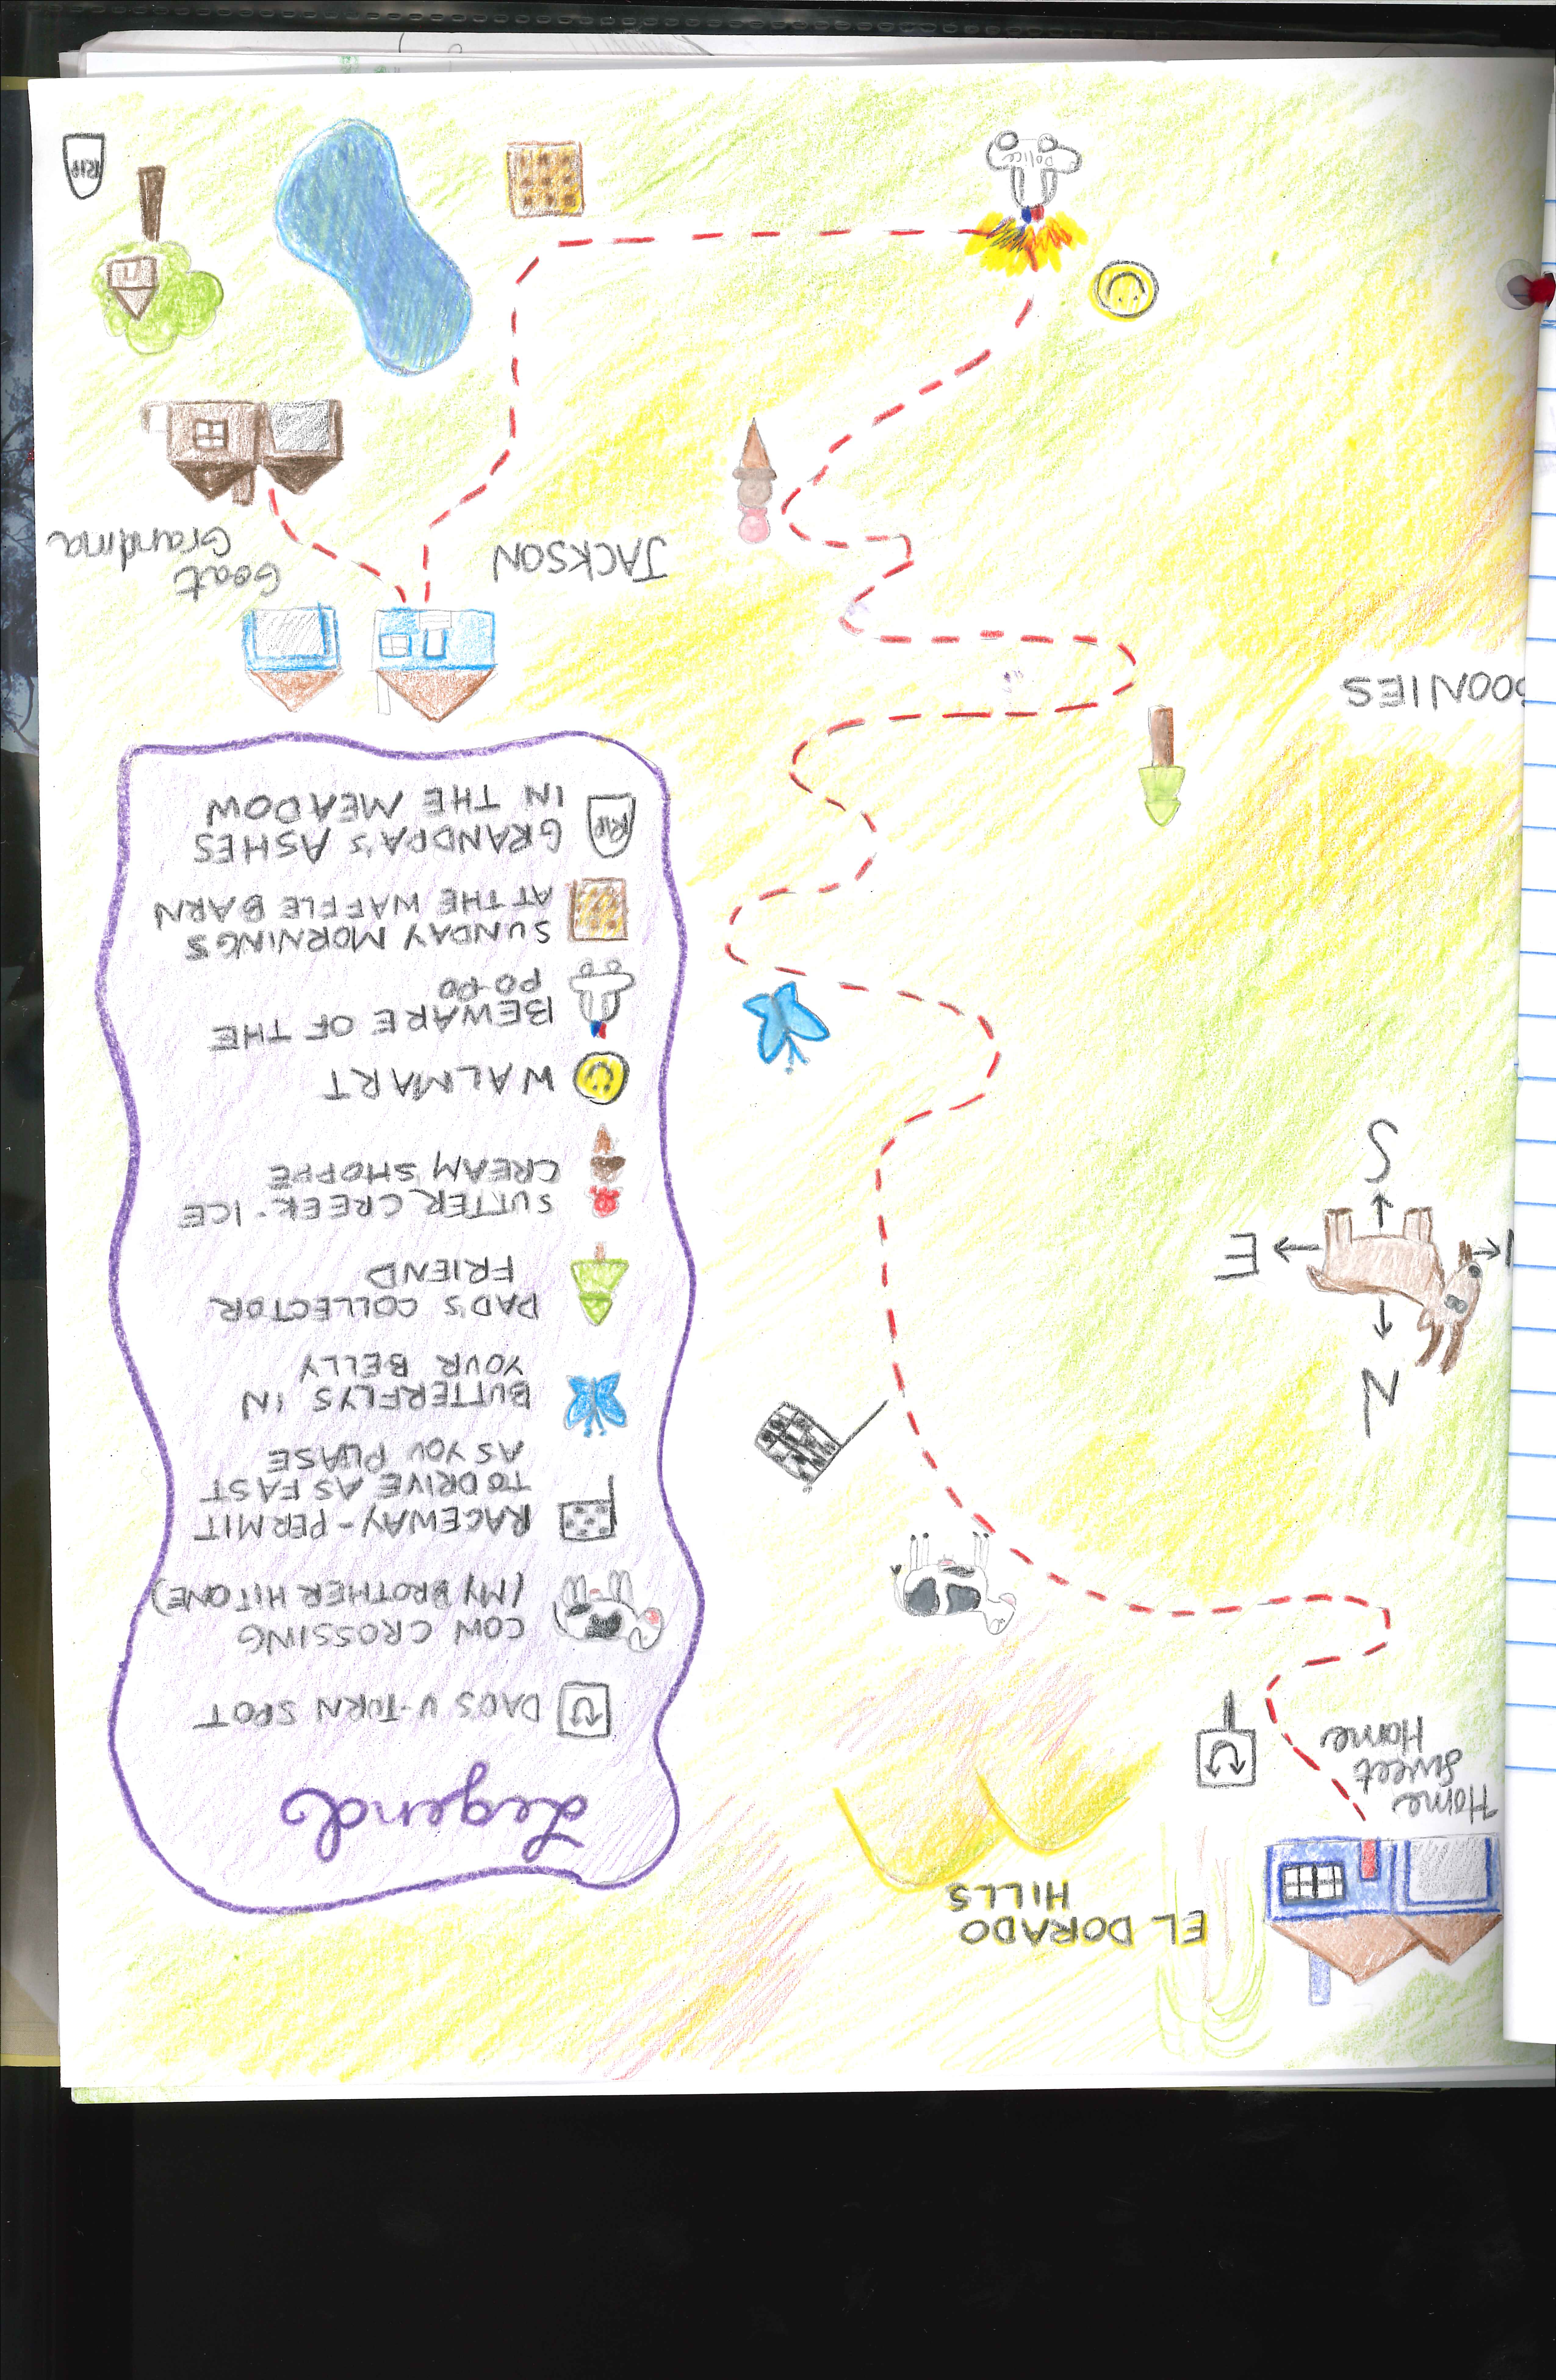 EL DORADO
HILLS
Home
Sweet
Home
Legend
DADS U-TURN SPOT
COW CROSSING
(MY BROTHER HIT ONE)
RACEWAY-PERMIT
TO DRIVE AS FAST
AS YOU PLEASE
BUTTERFLYS IN
YOUR BELLY
DAD'S COLLECTOR
FRIEND
SUTTER CREEK-ICE
CREAM SHOPPE
WALMART
BEWARE OF THE
PO-PO
SUNDAY MORNINGS
AT THE WAFFLE BARN
RIP
GRANDPA'S ASHES
IN THE MEADOW
N
E
S
OONIES
JACKSON
Goat
Grandma
POLICE
RIP